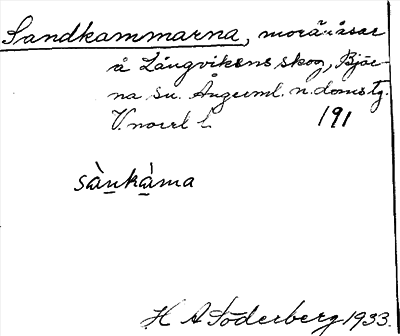 Sandkammarna, moränåsar
å Långviksns skog, Bjär-
na sn. Ångerml. n. doms tg.
V.norrl L. 191
sànkàma
H A Söderberg 1933.